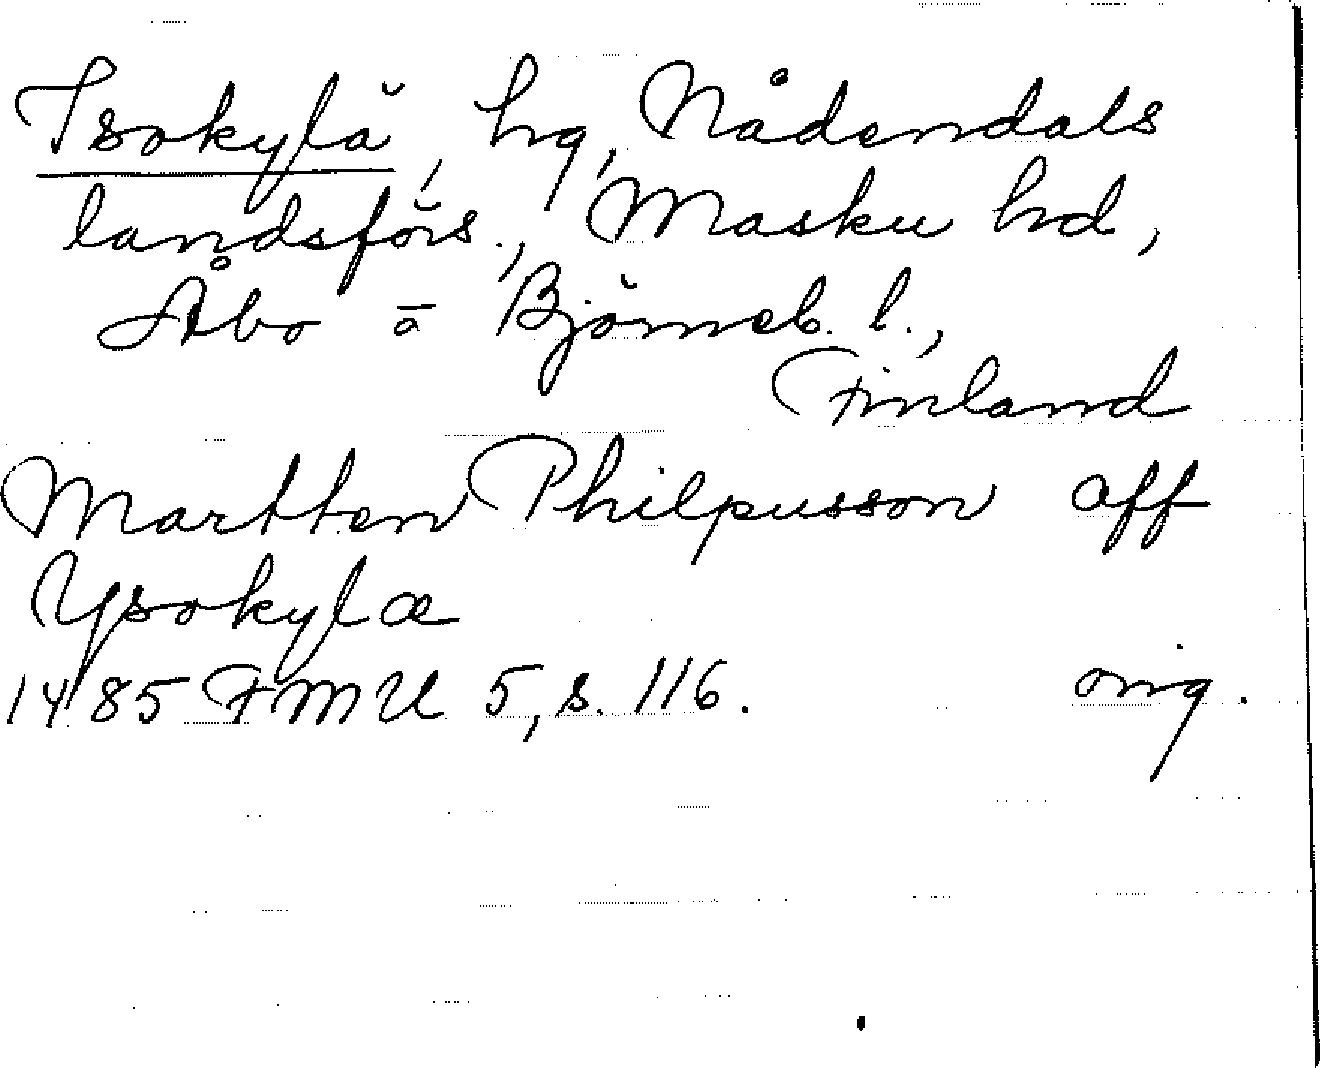 Isokylä, hg, Nådendals
landsförs., Masku hd,
Åbo o Björneb. l.,
Finland
Martten Philpusson aff
Ysokylæ
1485 FMU 5, s. 116. orig.